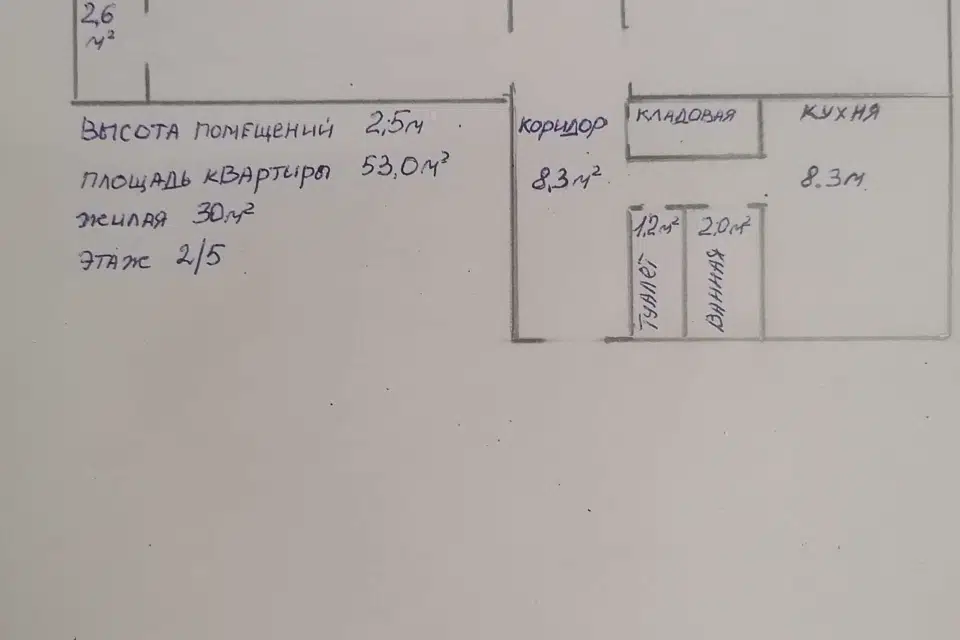 2,6
м²
ВЫСОТА ПОМЕЩЕНИЙ 2,5м
ПЛОЩАДЬ КВАРТИРЫ 53,0м²
ЖИЛАЯ 30м²
ЭТАЖ 2/5
КОРИДОР
8,3м²
КЛАДОВАЯ
КУХНЯ
8.3м
1,2м²
ТУАЛЕТ
2,0м²
ВАННАЯ